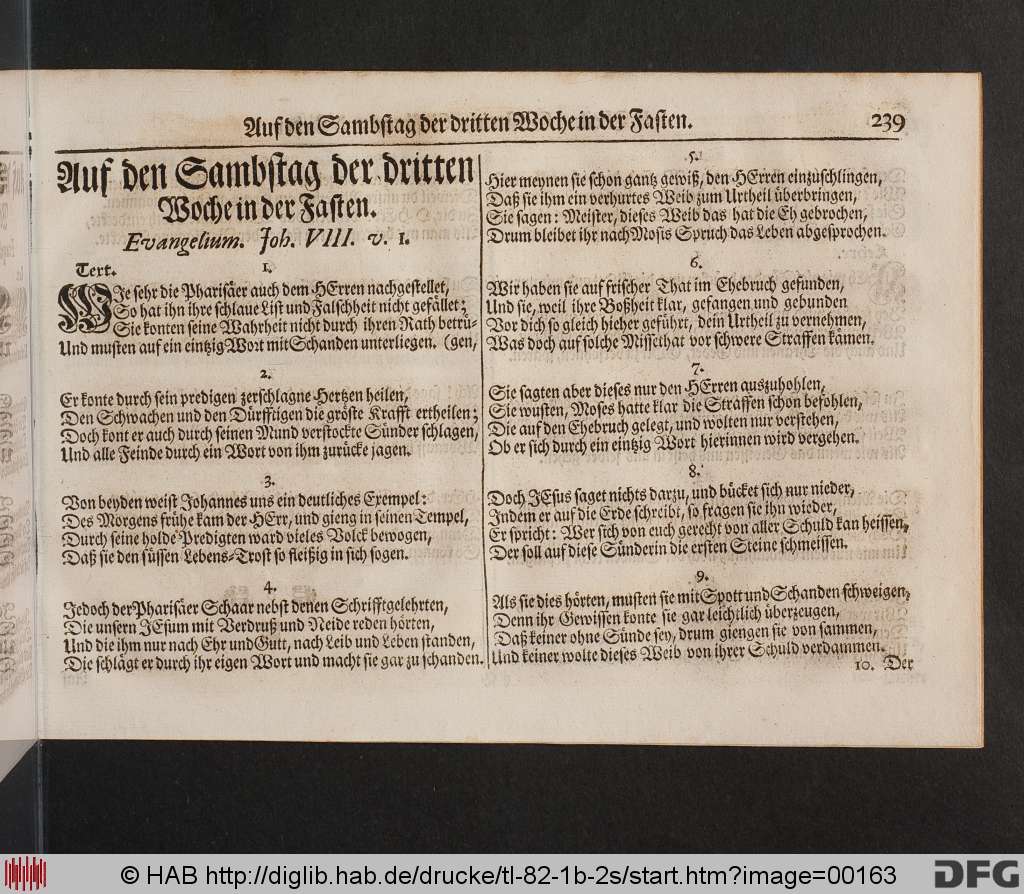 Auf den Sambstag der dritten Woche in der Fasten.
239
Auf den Sambstag der dritten
Woche in der Fasten.
Evangelium. Joh. VIII. v. 1.
Text.
1.
WJe sehr die Pharisäer auch dem HErren nachgestellet,
So hat ihn ihre schlaue List und Falschheit nicht gefället;
Sie konten seine Wahrheit nicht durch ihren Rath betrü-
Und musten auf ein eintzig Wort mit Schanden unterliegen. (gen,
2.
Er konte durch sein predigen zerschlagne Hertzen heilen,
Den Schwachen und den Dürfftigen die gröste Krafft ertheilen;
Doch kont er auch durch seinen Mund verstockte Sünder schlagen,
Und alle Feinde durch ein Wort von ihm zurücke jagen.
3.
Von beyden weist Johannes uns ein deutliches Exempel:
Des Morgens frühe kam der HErr, und gieng in seinen Tempel,
Durch seine holde Predigten ward vieles Volck bewogen,
Daß sie den süssen Lebens-Trost so fleißig in sich sogen.
4.
Jedoch der Pharisäer Schaar nebst denen Schrifftgelehrten,
Die unsern JEsum mit Verdruß und Neide reden hörten,
Und die ihm nur nach Ehr und Gutt, nach Leib und Leben standen,
Die schlägt er durch ihr eigen Wort und macht sie gar zu schanden.
5.
Hier meynen sie schon gantz gewiß, den HErren einzuschlingen,
Daß sie ihm ein verhurtes Weib zum Urtheil überbringen,
Sie sagen: Meister, dieses Weib das hat die Eh gebrochen,
Drum bleibet ihr nach Mosis Spruch das Leben abgesprochen.
6.
Wir haben sie auf frischer That im Ehebruch gefunden,
Und sie, weil ihre Boßheit klar, gefangen und gebunden
Vor dich so gleich hieher geführt, dein Urtheil zu vernehmen,
Was doch auf solche Missethat vor schwere Straffen kämen.
7.
Sie sagten aber dieses nur den HErren auszuhohlen,
Sie wusten, Moses hatte klar die Straffen schon befohlen,
Die auf den Ehebruch gelegt, und wolten nur verstehen,
Ob er sich durch ein eintzig Wort hierinnen wird vergehen.
8.
Doch JEsus saget nichts darzu, und bücket sich nur nieder,
Indem er auf die Erde schreibt, so fragen sie ihn wieder,
Er spricht: Wer sich von euch gerecht von aller Schuld kan heissen,
Der soll auf diese Sünderin die ersten Steine schmeissen.
9.
Als sie dies hörten, musten sie mit Spott und Schanden schweigen,
Denn ihr Gewissen konte sie gar leichtlich überzeugen,
Daß keiner ohne Sünde sey, drum giengen sie von sammen,
Und keiner wolte dieses Weib von ihrer Schuld verdammen.
10. Der
© HAB http://diglib.hab.de/drucke/tl-82-1b-2s/start.htm?image=00163
DFG